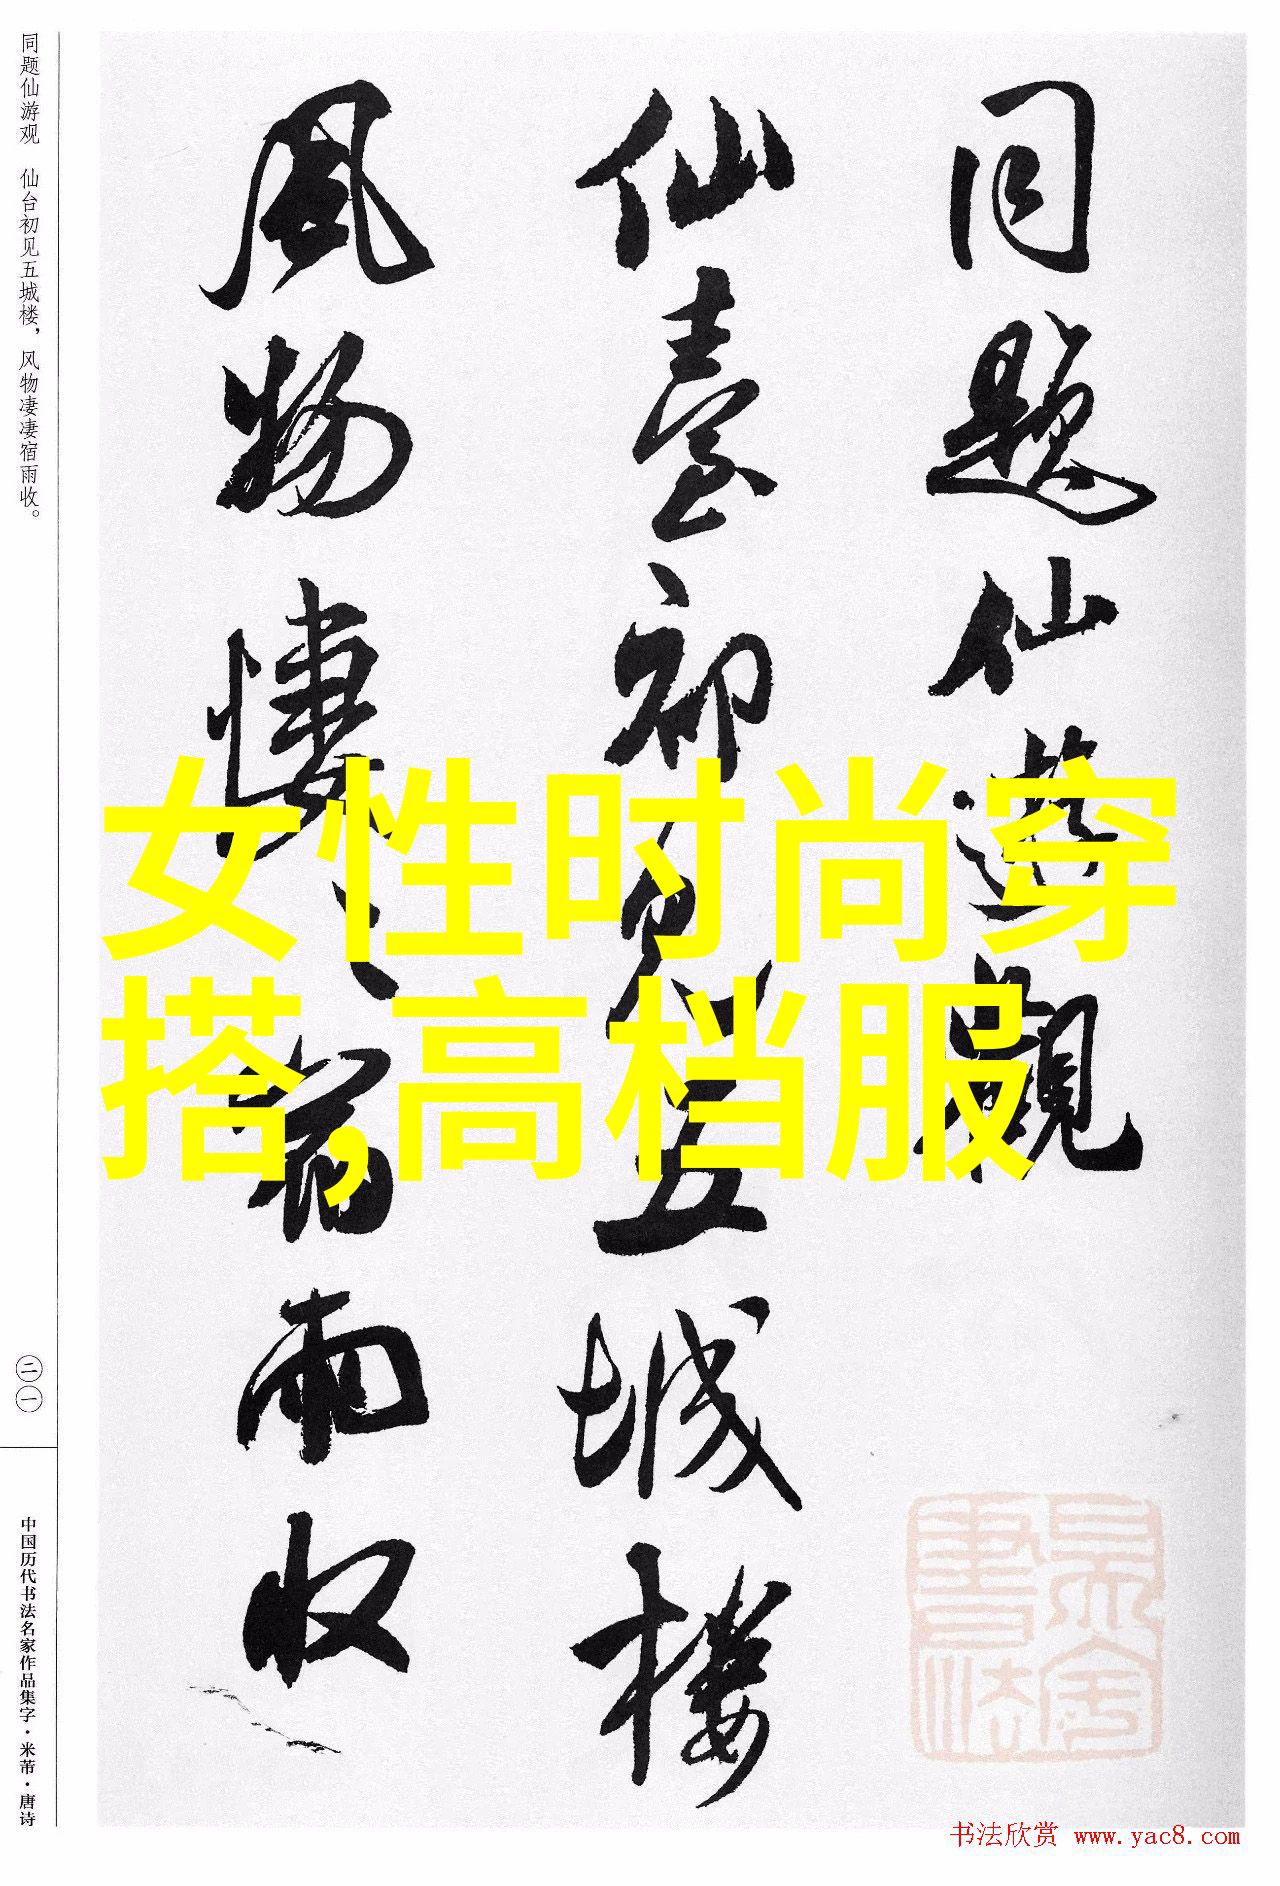 同题仙游观　仙台初见五城楼，风物凄凄宿雨收。
二一
中国历代书法名家作品集字·米芾·唐诗
同題仙遊觀
仙臺初見五城樓
風物悽〻宿雨收
女性时尚穿
搭,高档服
书法欣赏 www.yac8.com